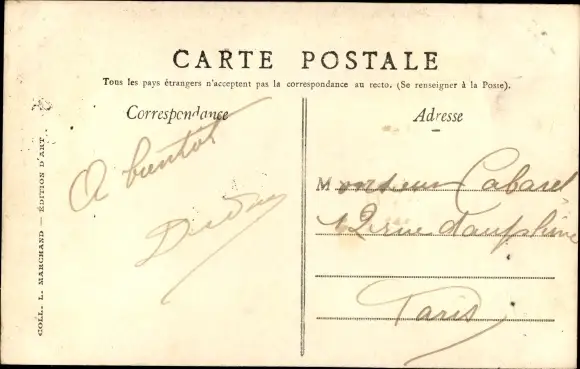 CARTE POSTALE
Tous les pays étrangers n'acceptent pas la correspondance au recto. (Se renseigner à la Poste).
Correspondance
A bientot
Adresse
Monsieur Cabaret
12 rue dauphine
Paris
COLL. L. MARCHAND — ÉDITION D'ART.